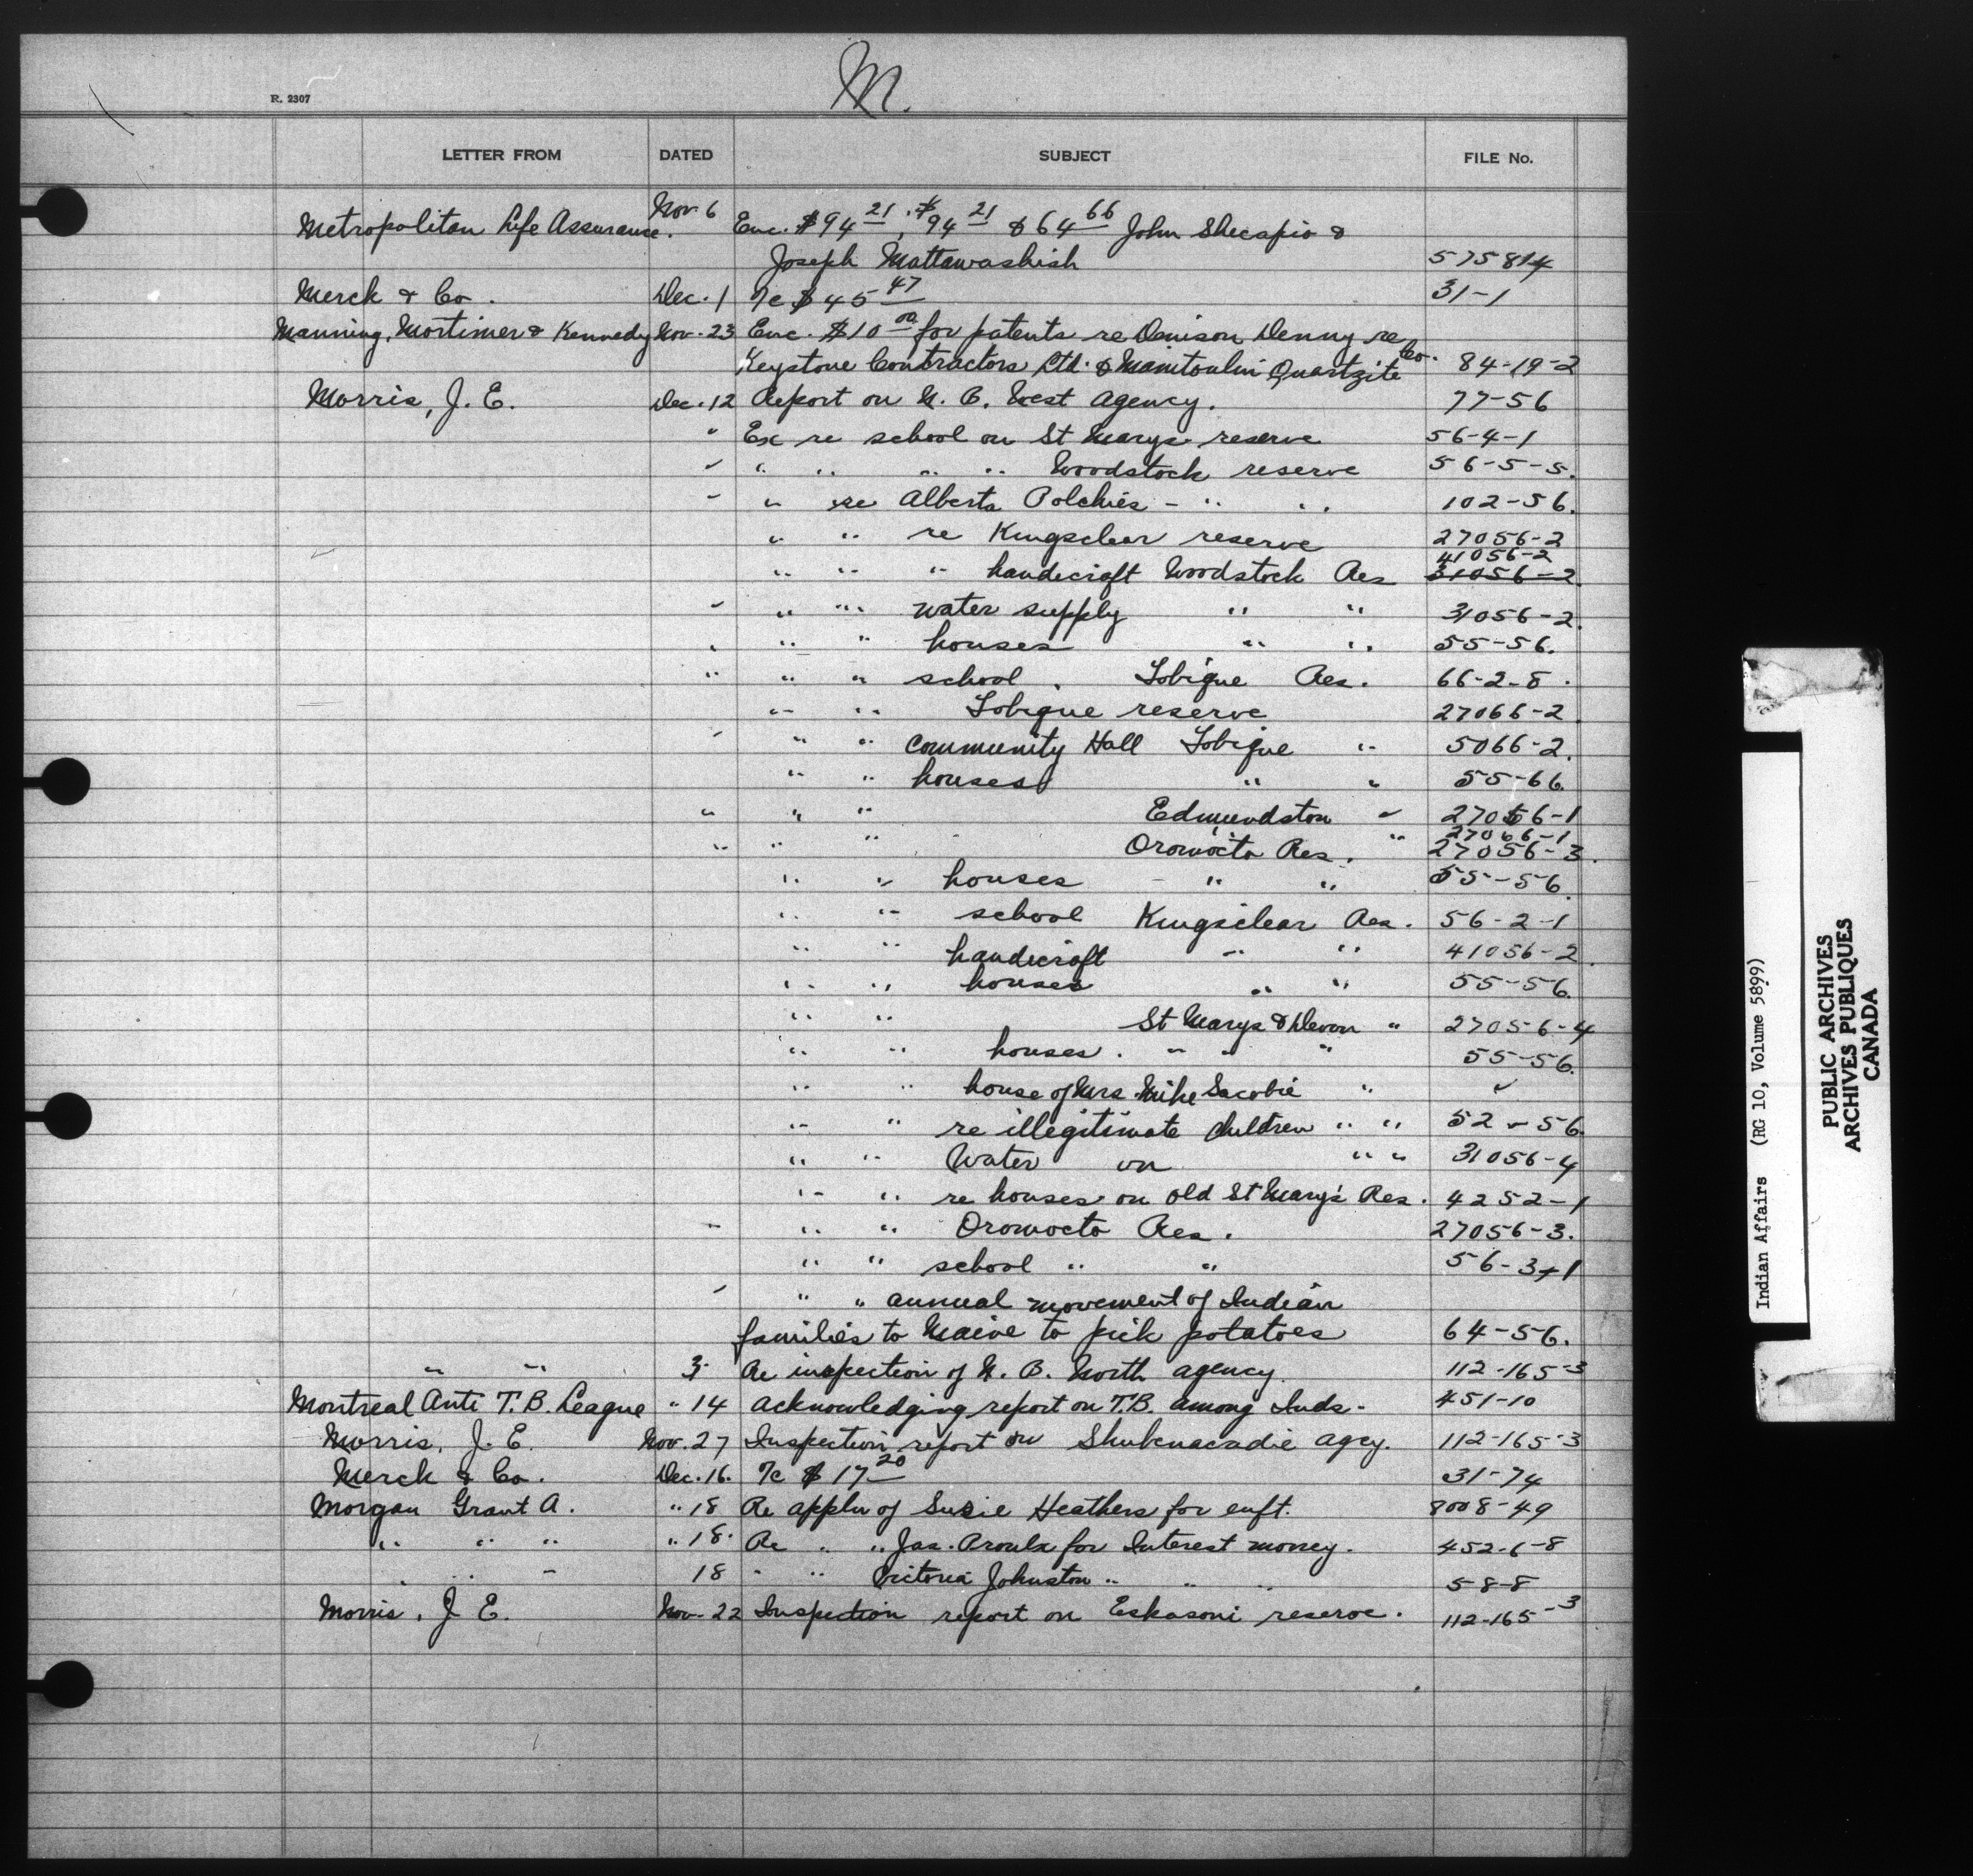 M.
R. 2307
LETTER FROM DATED SUBJECT FILE No.
Metropolitan Life Assurance. Nov. 6 Enc. $94 21, $94 21 & 64 66 John Shecapio &
Joseph Mattawashish 575814
Merck & Co. Dec. 1 7c $ 45 47 31-1
Manning, Mortimer & Kennedy Nov. 23 Enc. $10 00 for patents re Denison Denny re
Keystone Contractors Ltd. & Manitoulin Quartzite Co. 84-19-2
Morris, J. E. Dec. 12 Report on N. B. West Agency. 77-56
" Ex re school on St Marys reserve 56-4-1
" " " " " Woodstock reserve 56-5-5.
" " re Alberta Polchies - " " 102-56.
" " re Kingsclear reserve 27056-2
41056-2
" " " handicraft Woodstock Res 31056-2.
" " " water supply " " 31056-2.
" " " houses " " 55-56.
" " " school. Tobique Res. 66-2-8.
" " Tobique reserve 27066-2.
" " " Community Hall Tobique " 5066-2.
" " houses " " 55-66.
" " " Edmundston " 27056-1
27066-1
" " " Oromocto Res. " 27056-3.
" " houses - " " 55-56.
" " school Kingsclear Res. 56-2-1
" " handicraft " " 41056-2.
" " houses " " 55-56.
" " St Marys & Devon " 27056-4
" " houses. " " " 55-56.
" " house of Mrs. Mike Sacobie " "
" " re illegitimate children " " 52-56.
" " Water on " " 31056-4
" " re houses on old St Mary's Res. 4252-1
" " " Oromocto Res. 27056-3.
" " school " " 56-3-1
" " " annual movement of Indian
families to Maine to pick potatoes 64-56.
" " 3 Re inspection of N. B. North agency. 112-165-3
Montreal Anti T. B. League " 14 Acknowledging report on T.B. among Inds - 451-10
Morris, J. E. Nov. 27 Inspection report on Shubenacadie agcy. 112-165-3
Merck & Co. Dec. 16. 7c $ 17 20 31-74
Morgan Grant A. " 18 Re appln of Susie Heathers for enft. 8008-49
" " " " 18. Re " " Jas. Proulx for Interest money. 452-6-8
" " " 18 " " Victoria Johnston " " " 58-8
Morris, J. E. Nov. 22 Inspection report on Eskasoni reserve. 112-165-3
Indian Affairs (RG 10, Volume 5899)
PUBLIC ARCHIVES
ARCHIVES PUBLIQUES
CANADA